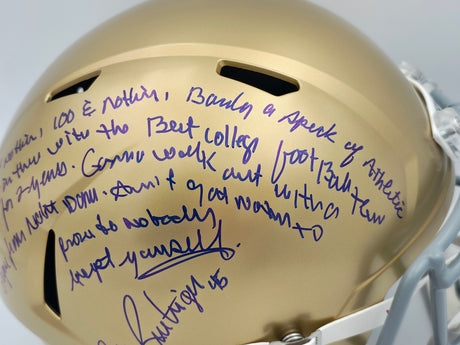 nothin, 100 & nothin, Barely a speck of Athletic
in there with the Best college football team
for 2-years. Gonna walk out with a
from Notre Dame. Ain't got nothin to
prove to nobody
except yourself.
Ruettiger 45